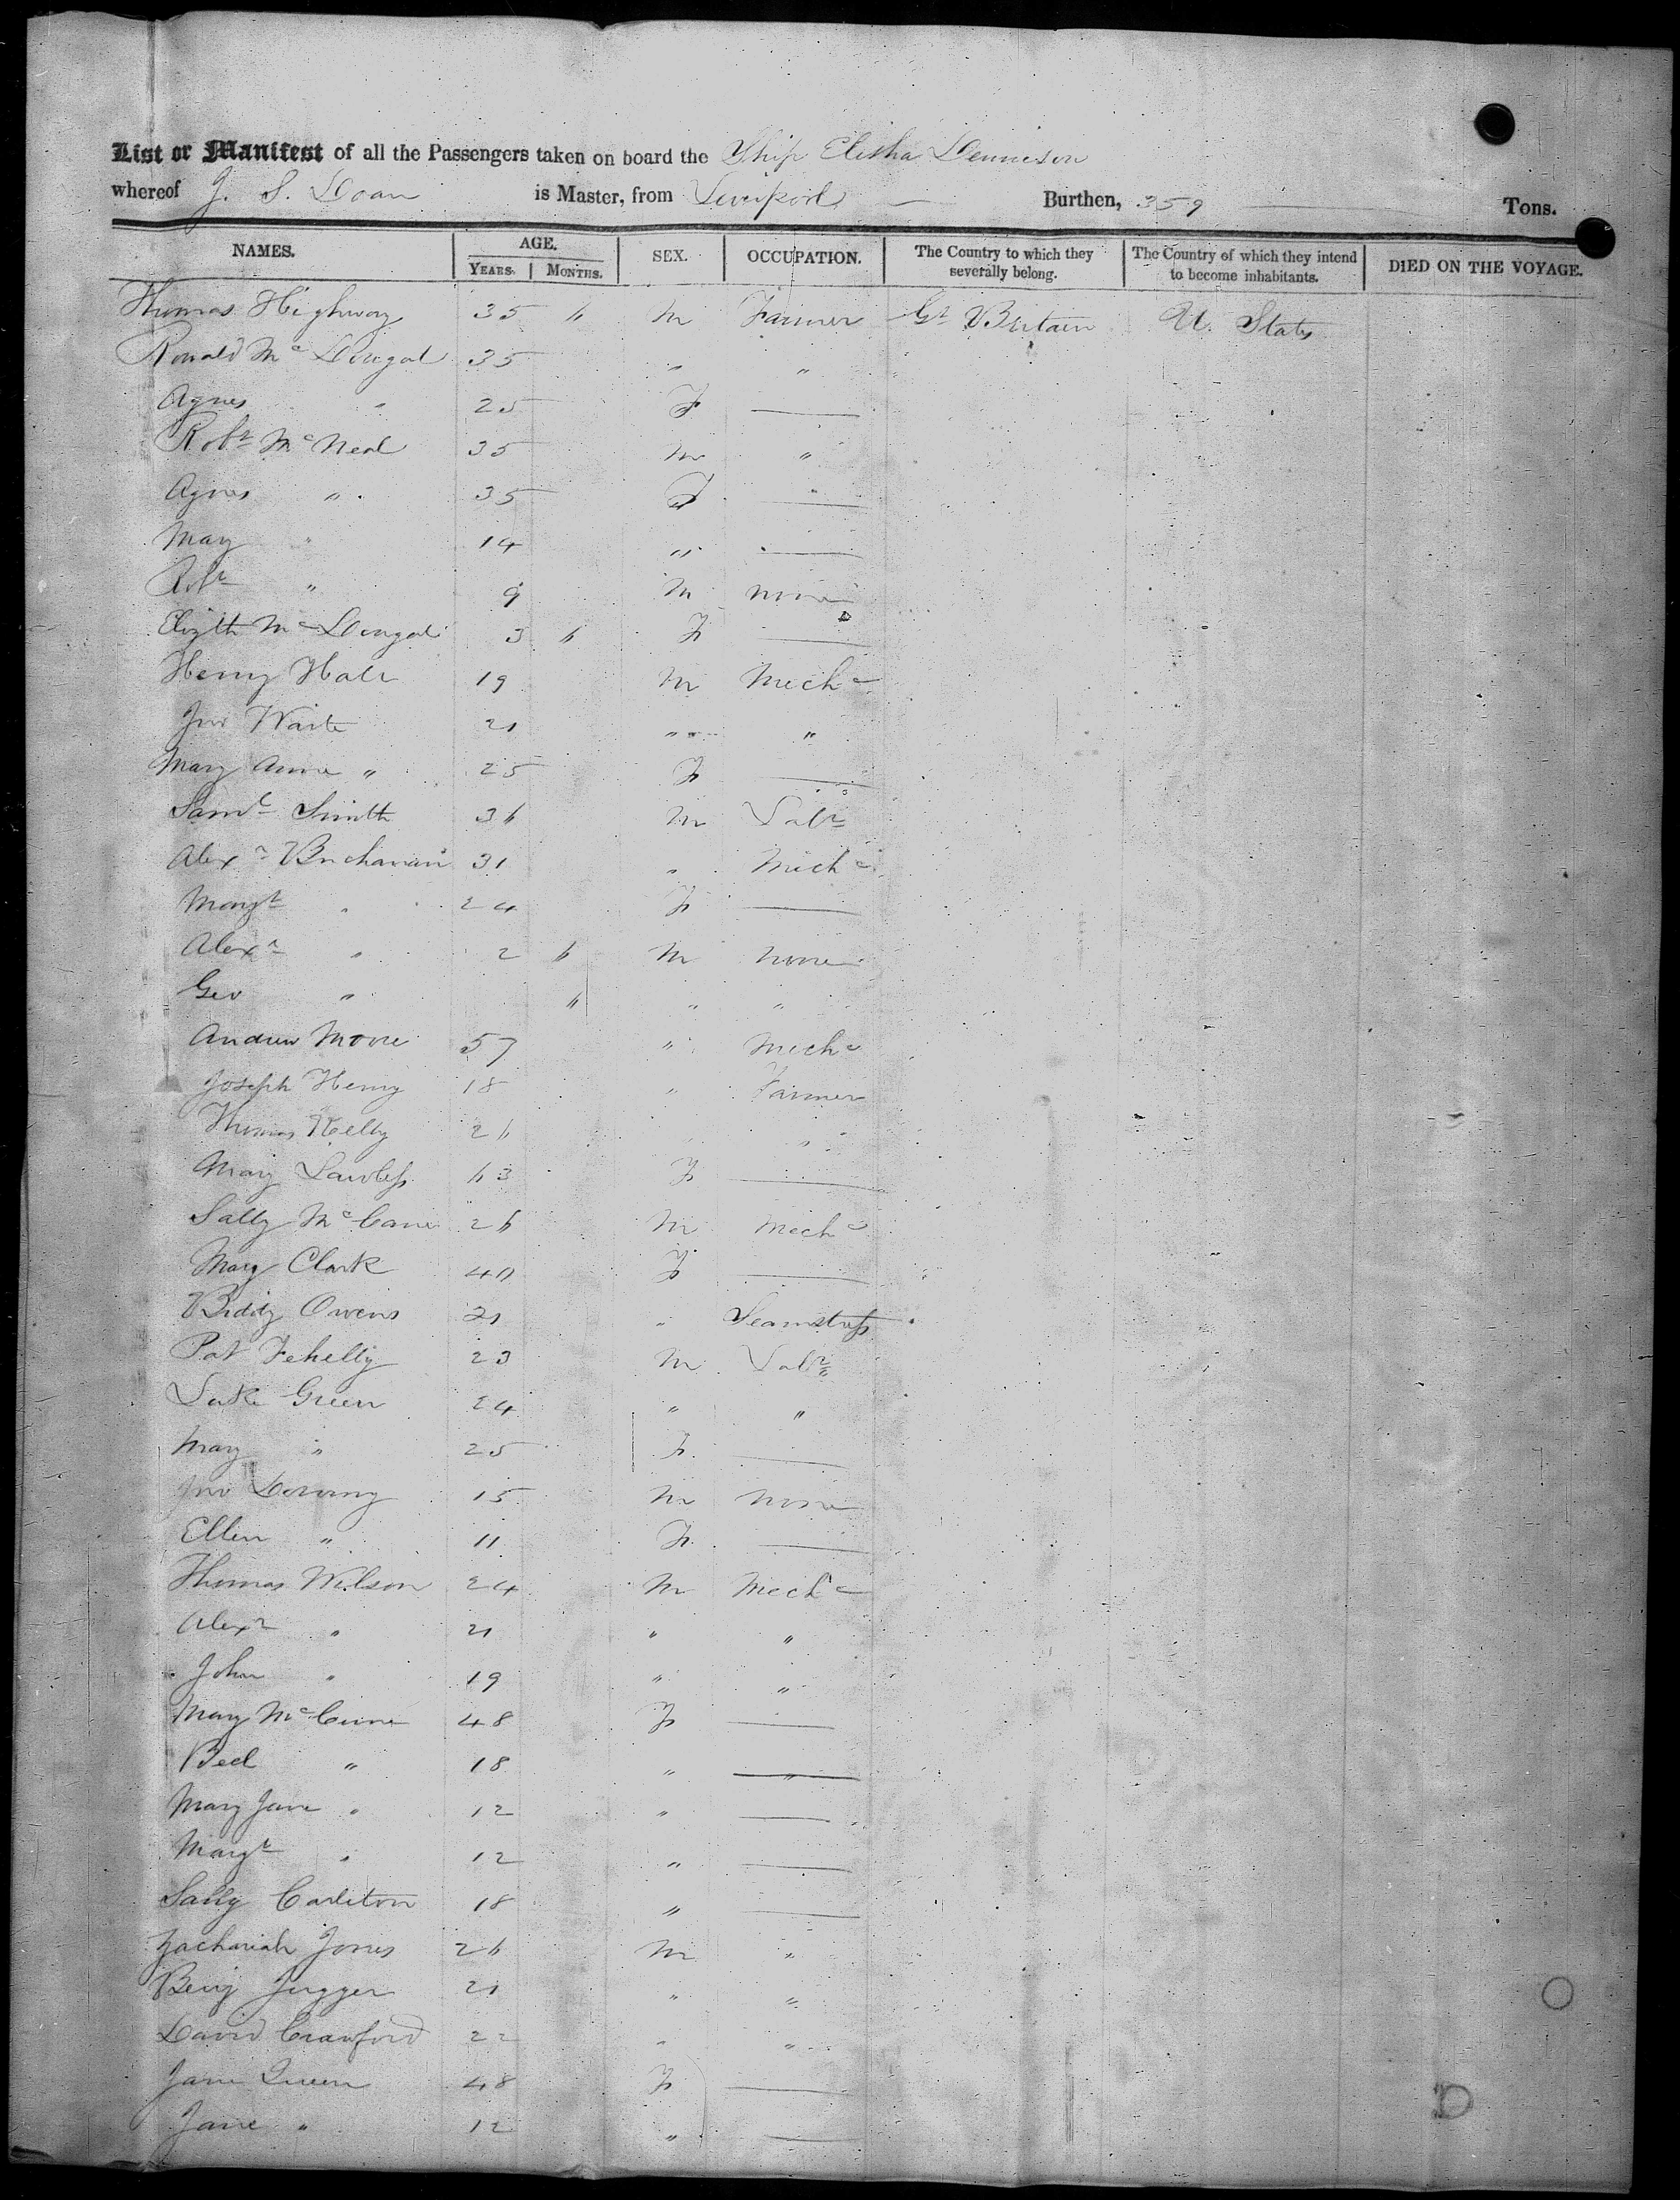 List or Manifest of all the Passengers taken on board the Ship Elisha Dennison
whereof J. S. Doan is Master, from Liverpool Burthen, 359 Tons.
NAMES. AGE. SEX. OCCUPATION. The Country to which they severally belong. The Country of which they intend to become inhabitants. DIED ON THE VOYAGE.
YEARS. MONTHS.
Thomas Highway 35 6 M Farmer Gt Britain U. States
Ronald McDougal 35 " "
Agnes " 25 F
Robt McNeal 35 M "
Agnes " 35 F "
Mary " 14 "
Robt " 9 M none
Elizth McDougal 3 6 F
Henry Hale 19 M Mechc
Jno Waite 21 " "
Mary Anne " 25 F
Saml Smith 36 M Labr
Alexr Buchanan 31 " Mechc
Margt " 24 F
Alexr " 2 6 M none
Geo " 6 " "
Andrew Moore 57 " Mechc
Joseph Henry 18 " Farmer
Thomas Kelly 26 " "
Mary Lawless 63 F
Sally McCann 26 M Mechc
Mary Clark 40 F
Biddy Owens 21 " Seamstress
Pat Fehelly 23 M Labr
Luke Green 24 " "
Mary " 25 F
Jno 15 M none
Ellen " 11 F
Thomas Wilson 24 M Mechc
Alexr " 21 " "
John " 19 " "
Mary McCune 48 F
Bed " 18 " "
Mary Jane " 12 "
Margt " 12 "
Sally Carleton 18 "
Zachariah Jones 26 M "
Benj Jugger 21 " "
David Crawford 22 " "
Jane Queen 48 F
Jane " 12 "